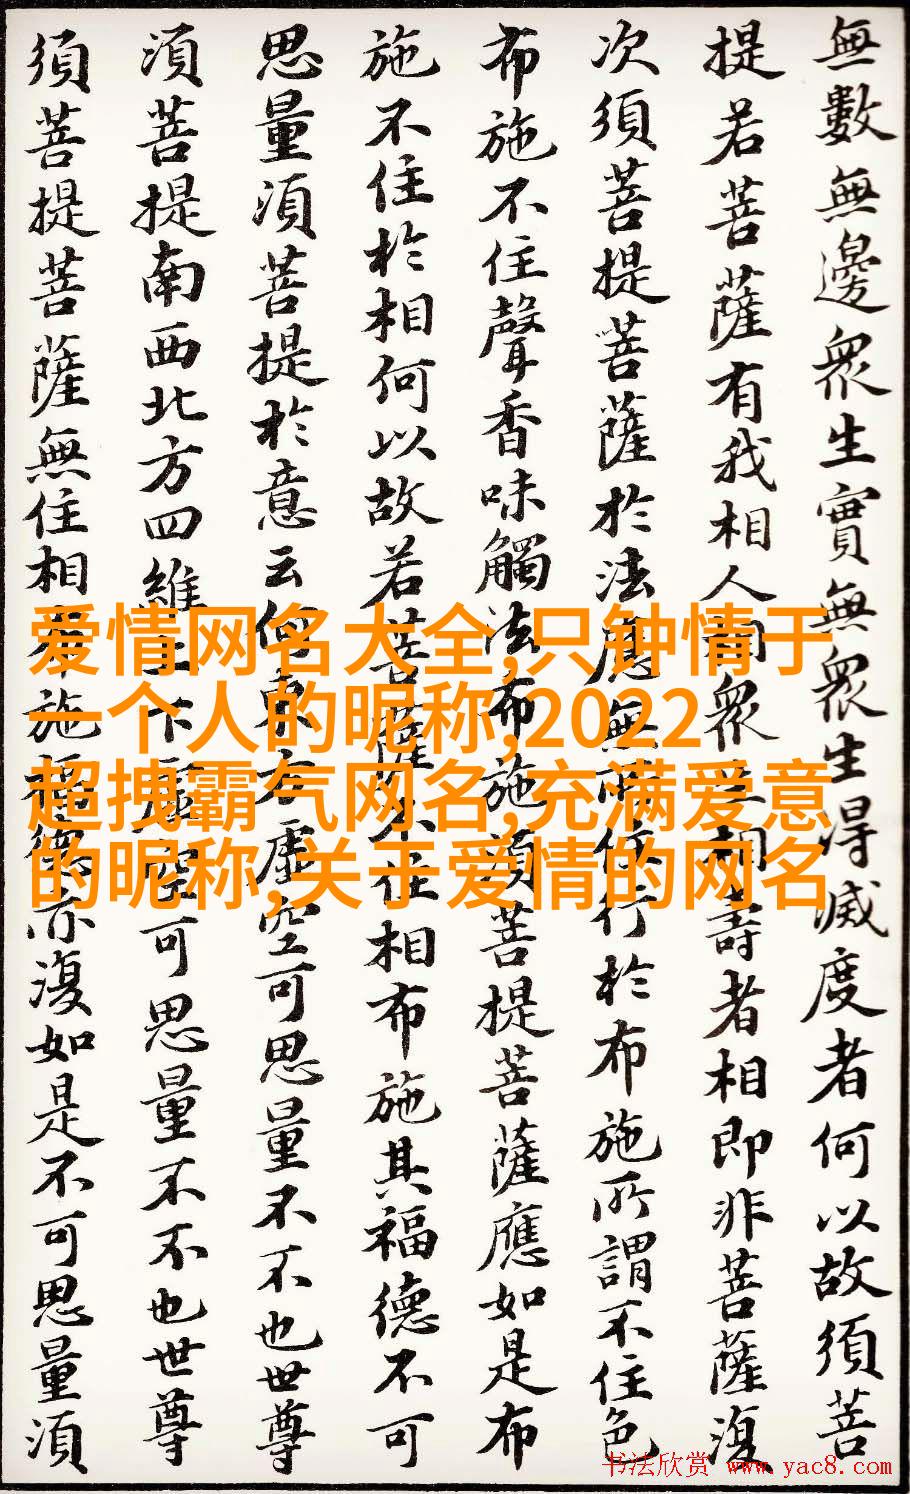 無數無邊衆生實無衆生得滅度者何以故須菩
提若菩薩有我相人相衆生相壽者相即非菩薩復
次須菩提菩薩於法應無所住行於布施所謂不住色
布施不住聲香味觸法布施須菩提菩薩應如是布
施不住於相何以故若菩薩不住相布施其福德不可
思量須菩提於意云何東方虛空可思量不不也世尊
須菩提南西北方四維上下虛空可思量不不也世尊
須菩提菩薩無住相布施福德亦復如是不可思量須
爱情网名大全,只钟情于
一个人的昵称,2022
超拽霸气网名,充满爱意
的昵称,关于爱情的网名
书法欣赏 www.yac8.com